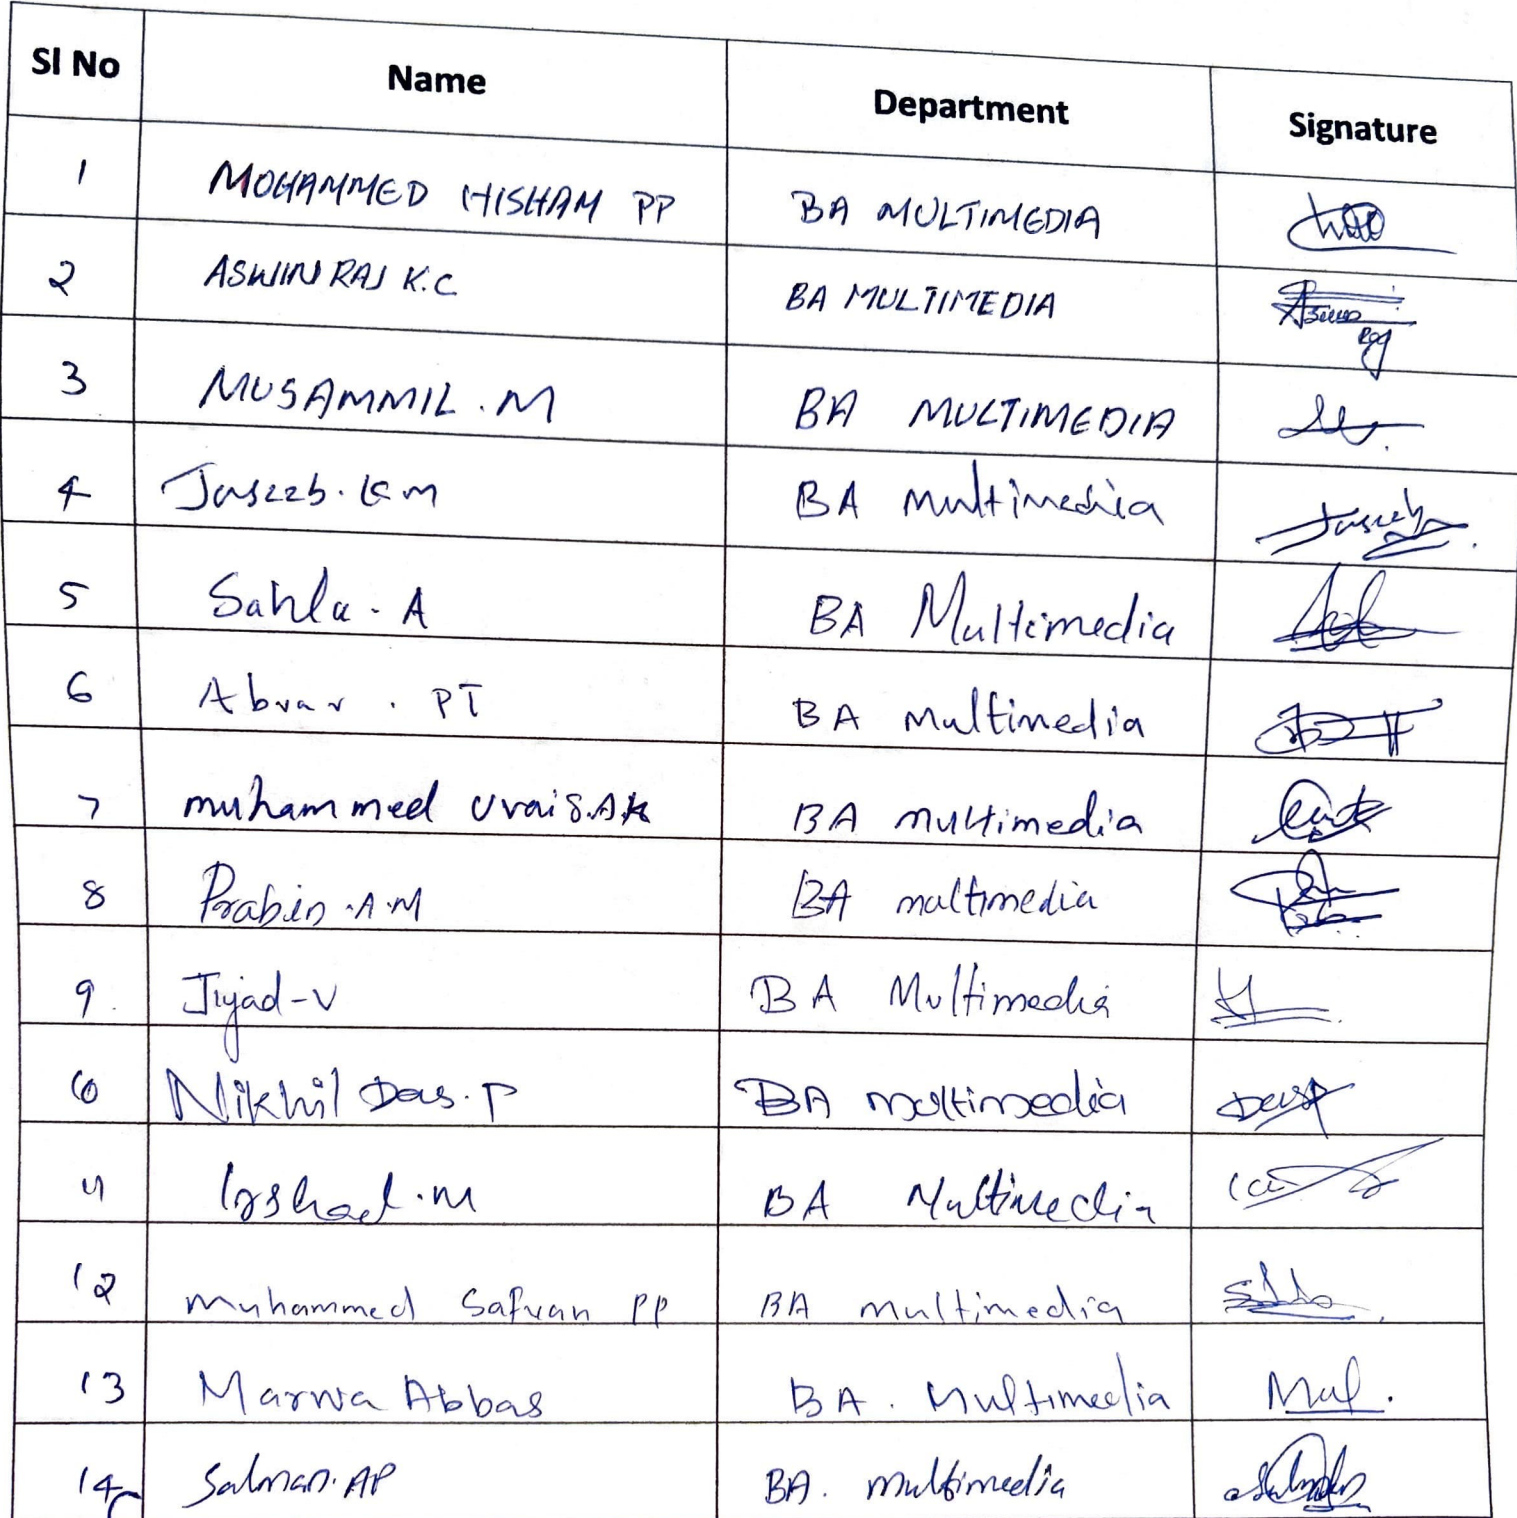 Sl No Name Department Signature
1 MOHAMMED HISHAM PP BA MULTIMEDIA
2 ASWIN RAJ K.C BA MULTIMEDIA
3 MUSAMMIL . M BA MULTIMEDIA
4 Jaseeb. K m BA multimedia Jaseeb
5 Sahla . A BA Multimedia
6 Abrar . PT BA Multimedia
7 muhammed uvais.Ak BA multimedia
8 Prabin .A.M BA multimedia
9. Jiyad-V BA Multimedia
10 Nikhil Das. P BA multimedia
11 Irshad .M BA Multimedia
12 Muhammed Safvan PP BA multimedia
13 Marwa Abbas BA. Multimedia
14 Salman. AP BA. multimedia